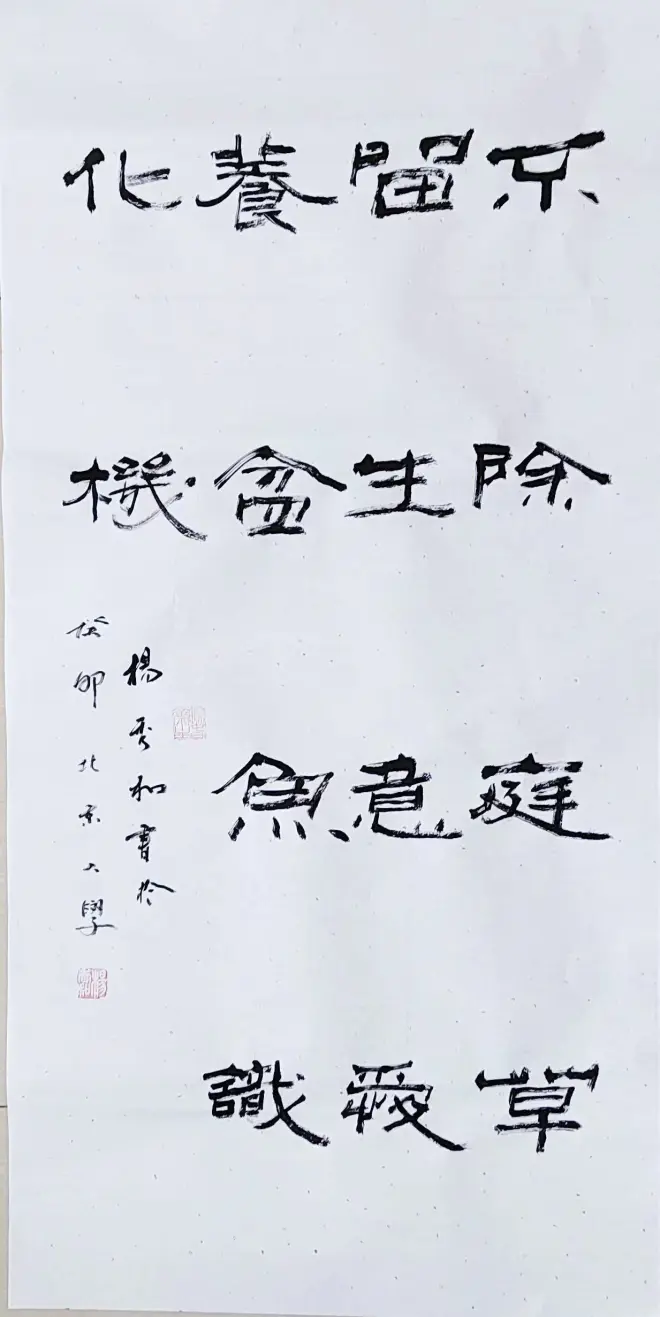 不除庭草
留生意愛
養盆魚識
化機
楊秀和書於
癸卯北京大學